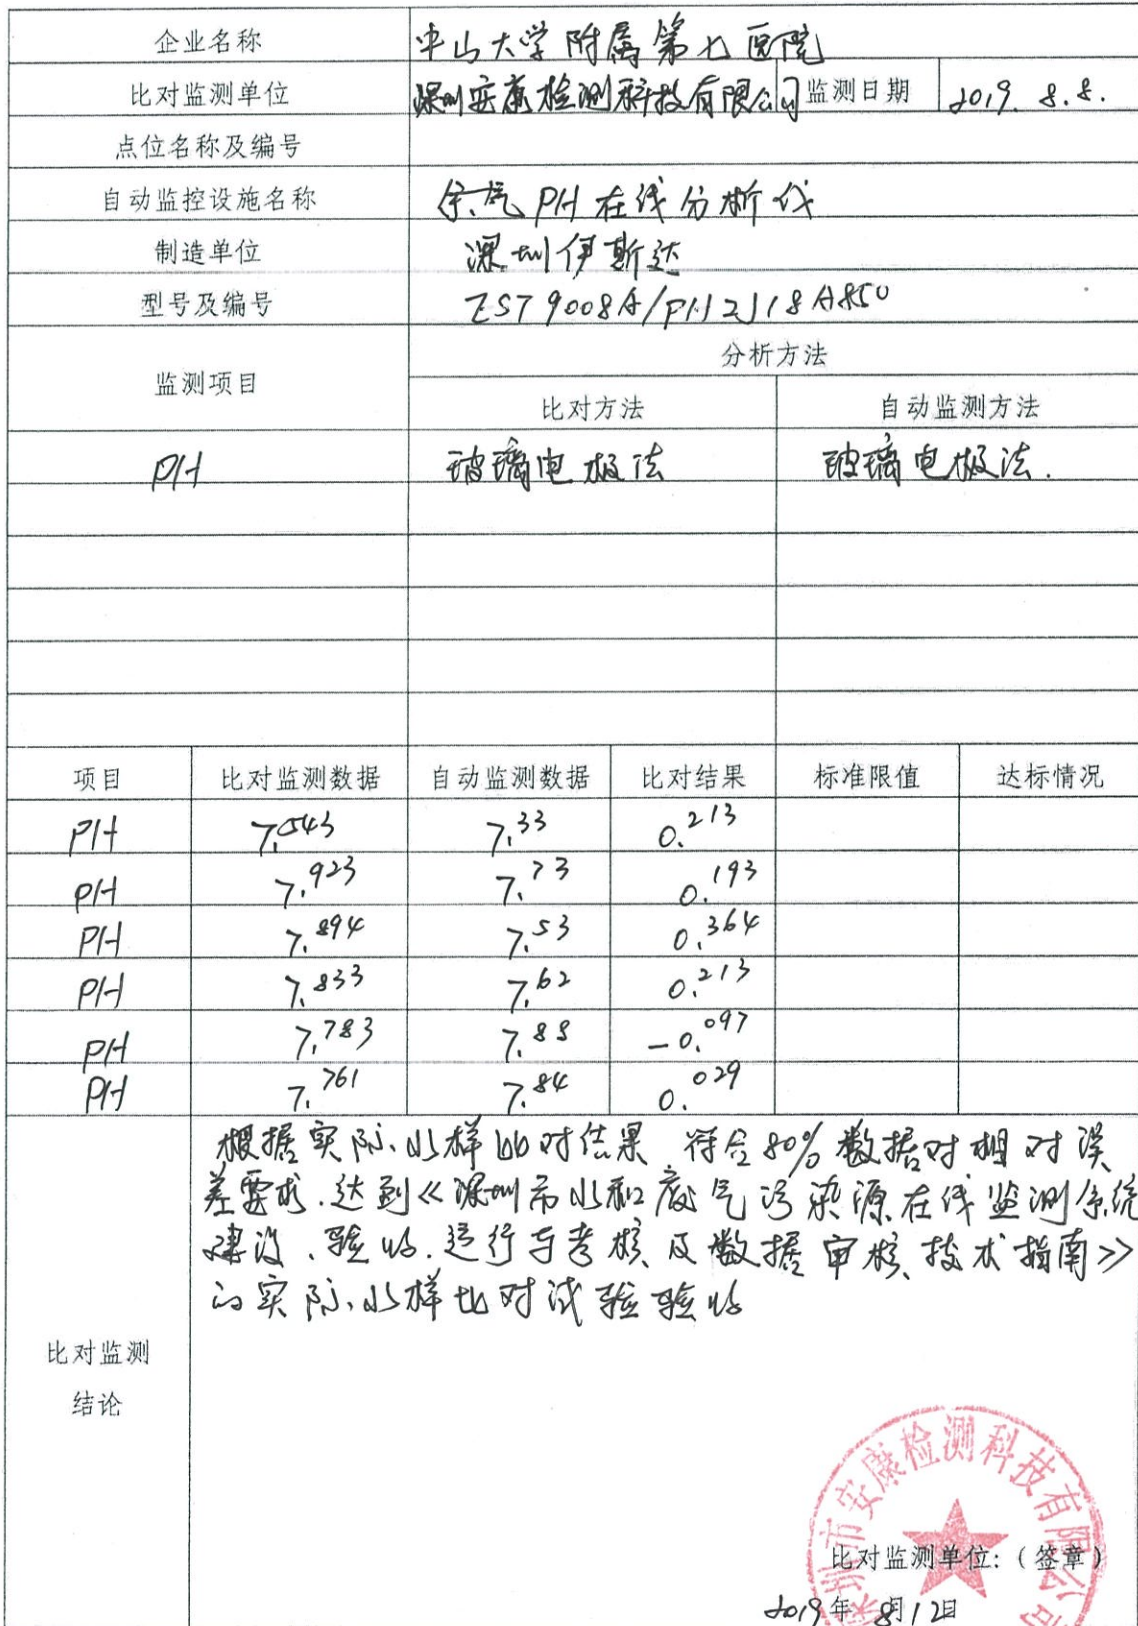 企业名称 中山大学附属第七医院
比对监测单位 深圳安康检测科技有限公司 监测日期 2019. 8.8.
点位名称及编号
自动监控设施名称 余氯PH在线分析仪
制造单位 深圳伊斯达
型号及编号 EST9008A/PHJ2J18A850
监测项目 分析方法
比对方法 自动监测方法
PH 玻璃电极法 玻璃电极法.
项目 比对监测数据 自动监测数据 比对结果 标准限值 达标情况
PH 7.543 7.33 0.213
PH 7.923 7.73 0.193
PH 7.894 7.53 0.364
PH 7.833 7.62 0.213
PH 7.783 7.88 -0.097
PH 7.761 7.84 0.029
根据实际水样比对结果 符合80%数据对相对误
差要求.达到《深圳市水和废气污染源在线监测系统
建设、验收.运行与考核及数据审核技术指南》
的实际水样比对试验验收
比对监测
结论
深圳市安康检测科技有限公司
比对监测单位:(签章)
2019年 8月12日